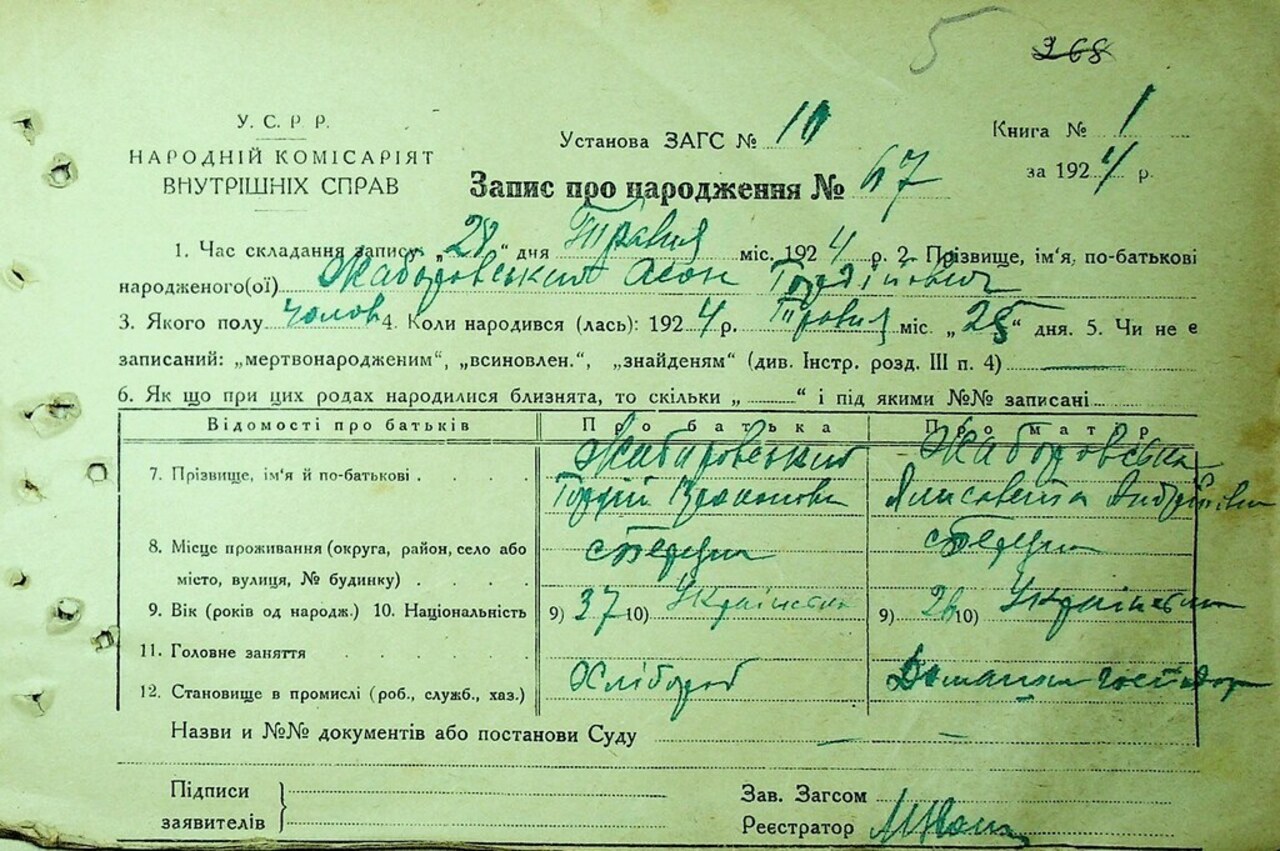 5 368
У. С. Р. Р.
НАРОДНІЙ КОМІСАРІЯТ
ВНУТРІШНІХ СПРАВ
Установа ЗАГС № 10
Книга № 1
за 1924 р.
Запис про народження № 67
1. Час складання запису „28“ дня Травня міс. 1924 р. 2. Прізвище, ім'я, по-батькові
народженого(ої) Жаборовський Гордійович
3. Якого полу чолов 4. Коли народився (лась): 1924 р. Травня міс. „25“ дня. 5. Чи не є
записаний: „мертвонародженим“, „всиновлен.“, „знайденям“ (див. Інстр. розд. III п. 4)
6. Як що при цих родах народилися близнята, то скільки „ “ і під якими №№ записані
Відомості про батьків Про батька Про матір
7. Прізвище, ім'я й по-батькові Жаборовський Жаборовська
Гордій Андріївна
8. Місце проживання (округа, район, село або
місто, вулиця, № будинку)
9. Вік (років од народж.) 10. Національність 9) 37 10) 9) 26 10)
11. Головне заняття
12. Становище в промислі (роб., служб., хаз.) Хлібороб Домашня
Назви и №№ документів або постанови Суду
Підписи
заявителів
Зав. Загсом
Реєстратор